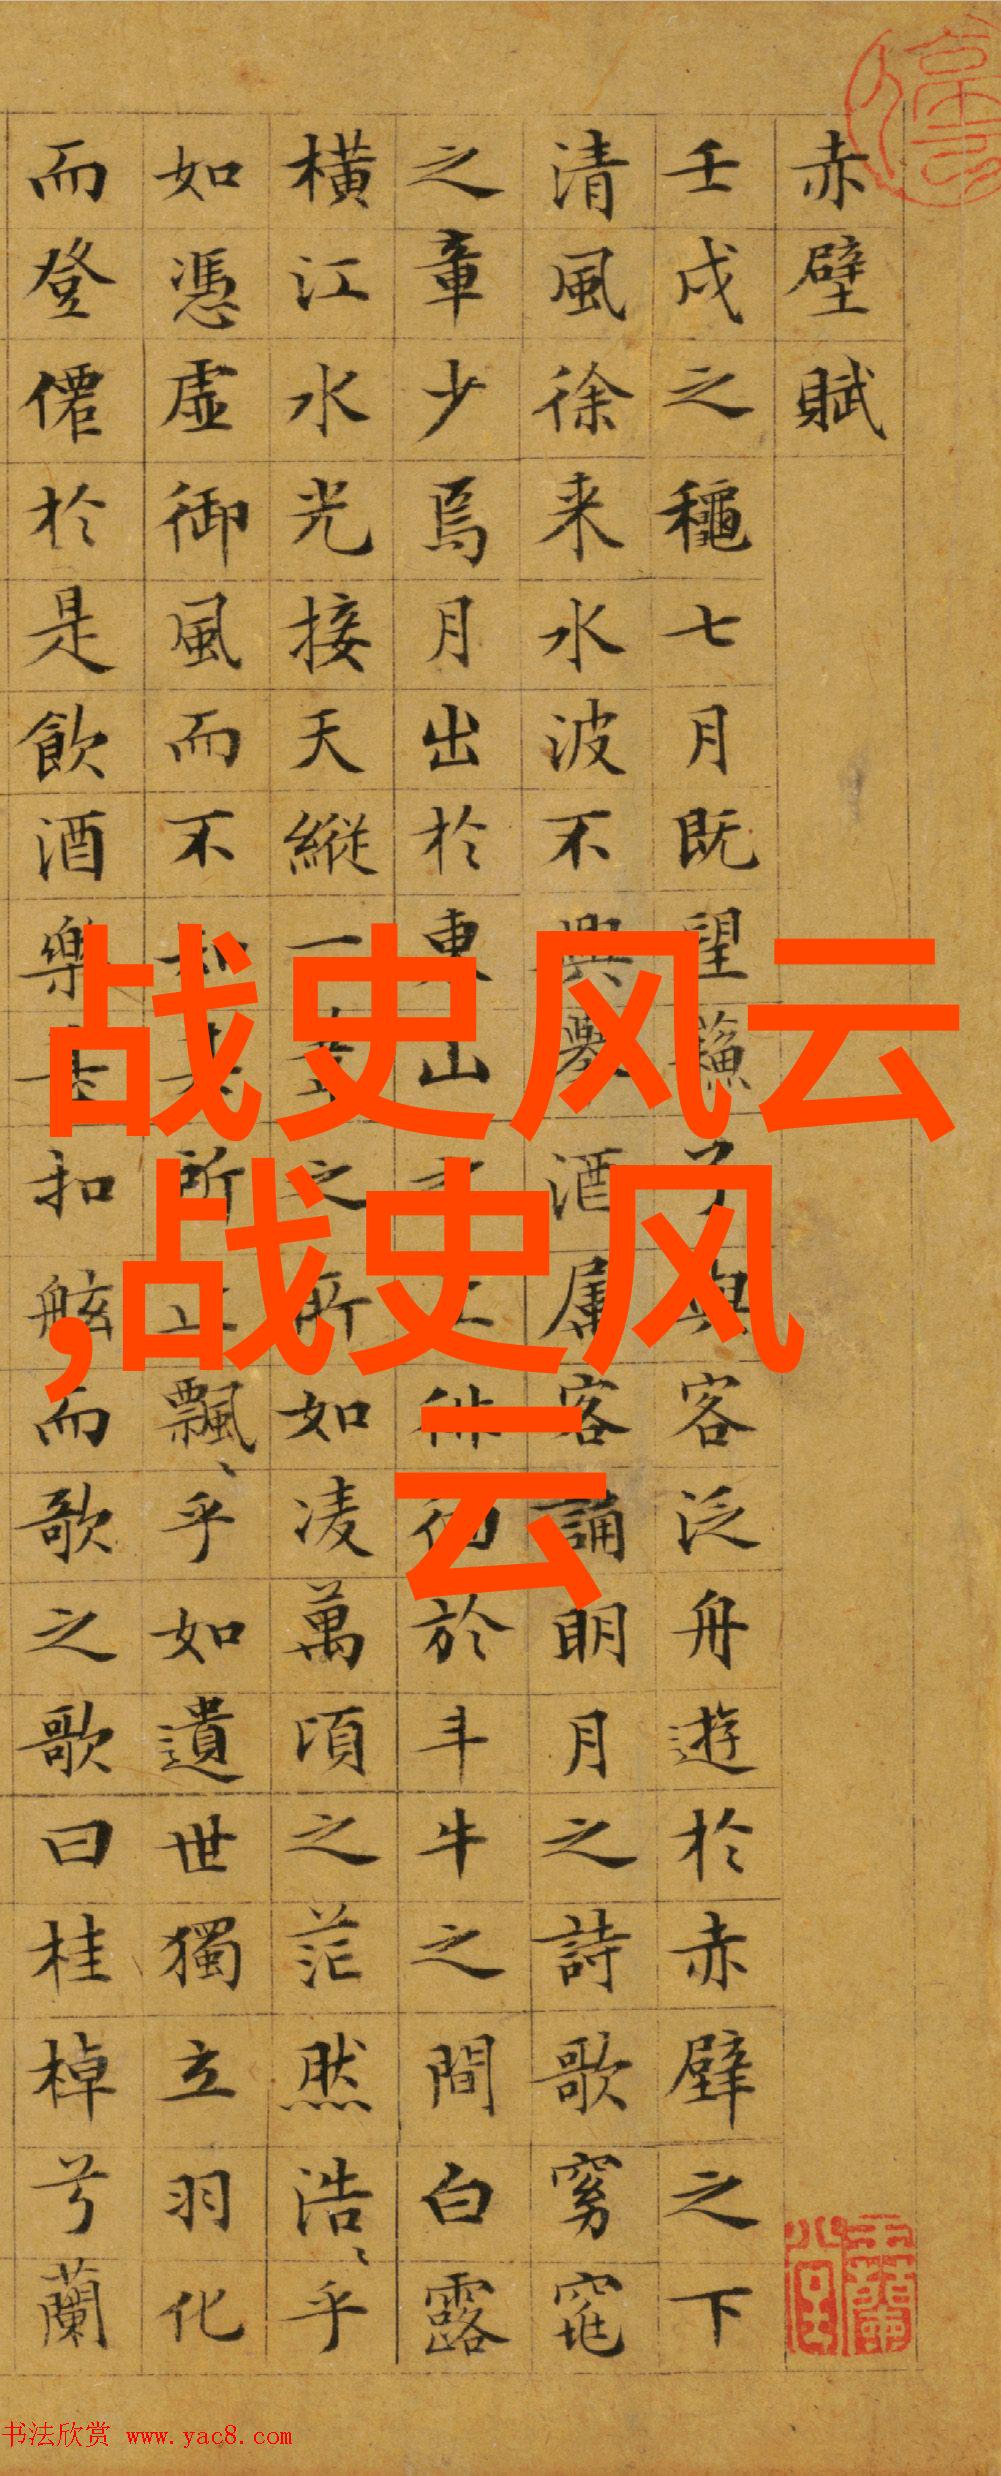 赤壁賦
壬戌之穐七月既望蘓子與客泛舟遊於赤壁之下
清風徐来水波不興舉酒属客誦明月之詩歌窈窕
之章少焉月出於東山之上徘徊於斗牛之間白露
横江水光接天縱一葦之所如凌萬頃之茫然浩〻乎
如憑虛御風而不知其所止飄〻乎如遺世獨立羽化
而登僊於是飲酒樂甚扣舷而歌之歌曰桂棹兮蘭
战史风云
,战史风
云
书法欣赏 www.yac8.com